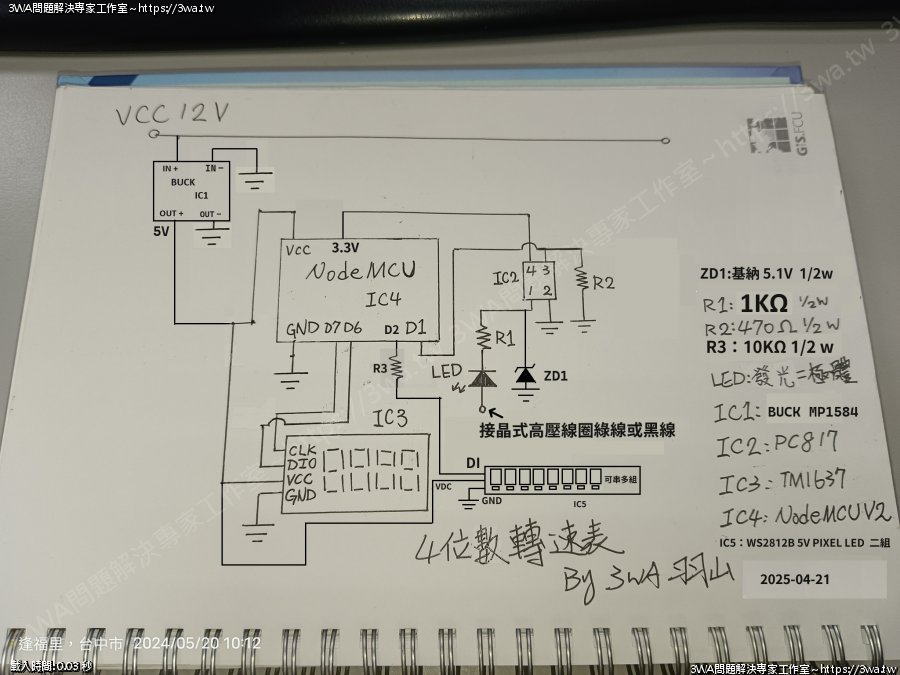 3WA問題解決專家工作室～https://3wa.tw
3WA問題解決專家工作室～https://3wa.tw
VCC 12V
GIS.FCU
IN + IN −
BUCK
IC1
OUT + OUT −
5V
VCC 3.3V
NodeMCU
IC4
GND D7 D6 D2 D1
R3
IC2
4 3
1 2
R2
R1
LED
ZD1
接晶式高壓線圈綠線或黑線
IC3
CLK
DIO
VCC
GND
DI
VDC
GND
可串多組
IC5
ZD1:基納 5.1V 1/2w
R1: 1KΩ 1/2W
R2:470Ω 1/2W
R3：10KΩ 1/2 w
LED:發光二極體
IC1: BUCK MP1584
IC2:PC817
IC3: TM1637
IC4: NodeMCU V2
IC5：WS2812B 5V PIXEL LED 二組
4位數轉速表
By 3WA 羽山
2025-04-21
3WA問題解決專家工作室～https://3wa.tw
逢福里，台中市 2024/05/20 10:12
載入時間: 0.03 秒
3WA問題解決專家工作室～https://3wa.tw